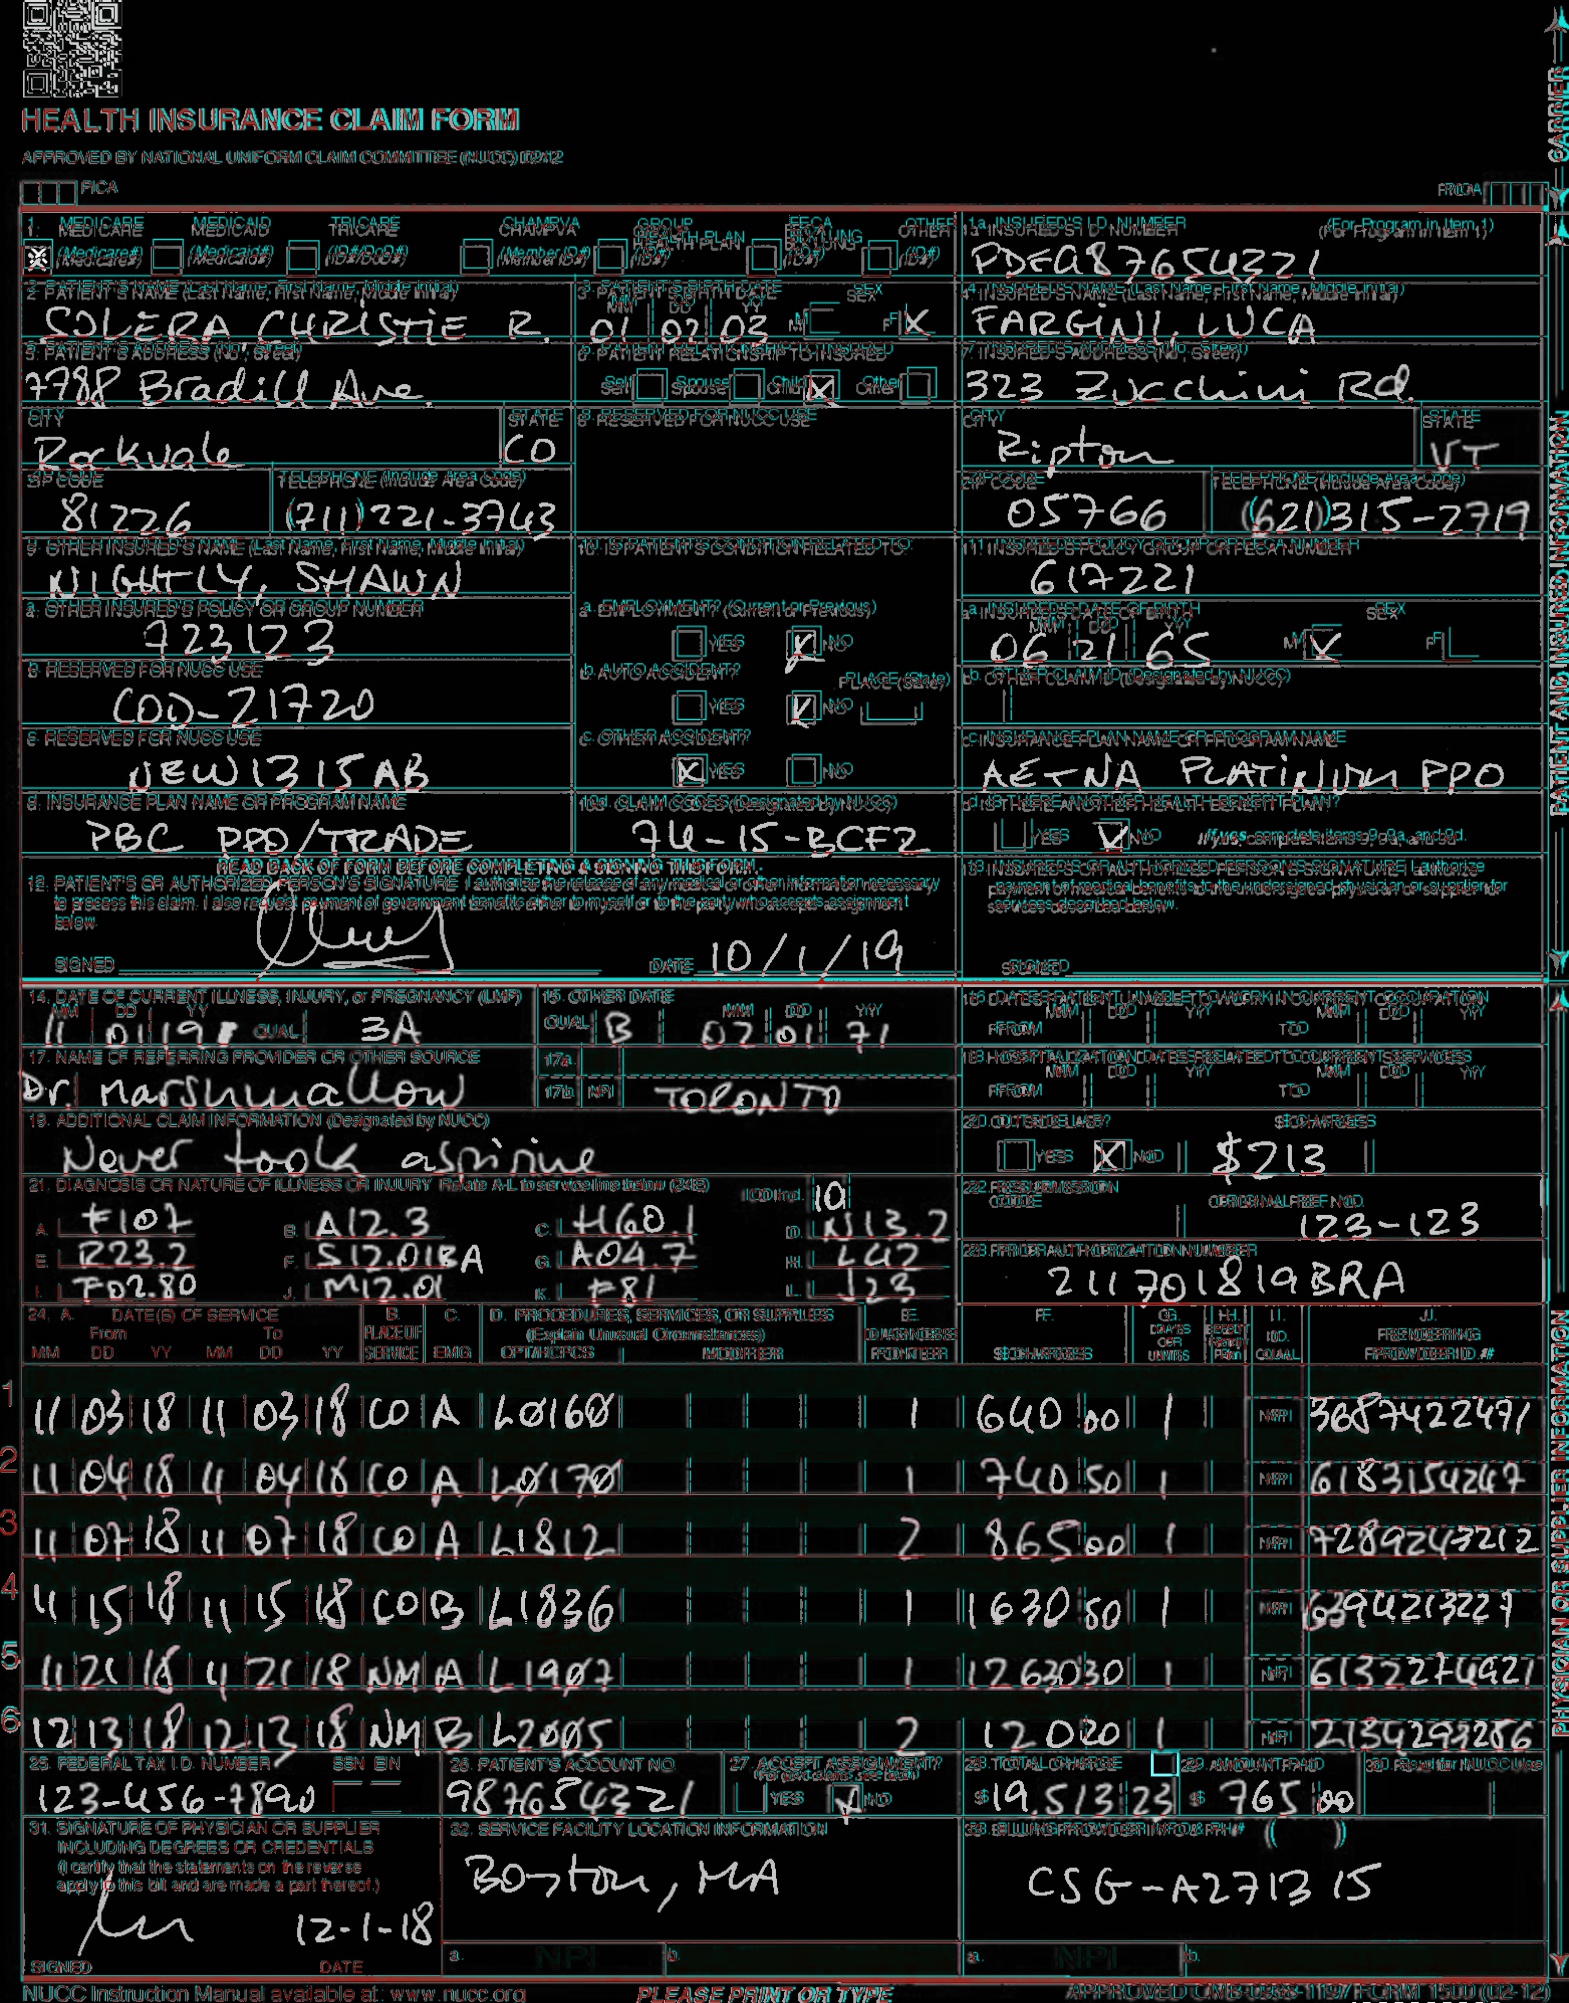 HEALTH INSURANCE CLAIM FORM
APPROVED BY NATIONAL UNIFORM CLAIM COMMITTEE (NUCC) 02/12
PICA
PICA
CARRIER
1. MEDICARE MEDICAID TRICARE CHAMPVA GROUP HEALTH PLAN FECA BLK LUNG OTHER
(Medicare#) (Medicaid#) (ID#/DoD#) (Member ID#) (ID#) (ID#) (ID#)
1a. INSURED'S I.D. NUMBER (For Program in Item 1)
PDEA87654321
2. PATIENT'S NAME (Last Name, First Name, Middle Initial)
SOLERA CHRISTIE R.
3. PATIENT'S BIRTH DATE SEX
MM DD YY
01 02 03 M F X
4. INSURED'S NAME (Last Name, First Name, Middle Initial)
FARGINI, LUCA
5. PATIENT'S ADDRESS (No., Street)
7788 Bradill Ave.
6. PATIENT RELATIONSHIP TO INSURED
Self Spouse Child X Other
7. INSURED'S ADDRESS (No., Street)
323 Zucchini Rd.
CITY STATE
Rockvale CO
8. RESERVED FOR NUCC USE
CITY STATE
Ripton VT
ZIP CODE TELEPHONE (Include Area Code)
81226 (711) 221-3743
ZIP CODE TELEPHONE (Include Area Code)
05766 (621) 315-2719
9. OTHER INSURED'S NAME (Last Name, First Name, Middle Initial)
NIGHTLY, SHAWN
10. IS PATIENT'S CONDITION RELATED TO:
11. INSURED'S POLICY GROUP OR FECA NUMBER
617221
a. OTHER INSURED'S POLICY OR GROUP NUMBER
723123
a. EMPLOYMENT? (Current or Previous)
YES NO
a. INSURED'S DATE OF BIRTH SEX
MM DD YY
06 21 65 M X F
b. RESERVED FOR NUCC USE
COD-21720
b. AUTO ACCIDENT? PLACE (State)
YES NO
b. OTHER CLAIM ID (Designated by NUCC)
c. RESERVED FOR NUCC USE
NEW1315AB
c. OTHER ACCIDENT?
X YES NO
c. INSURANCE PLAN NAME OR PROGRAM NAME
AETNA PLATINUM PPO
d. INSURANCE PLAN NAME OR PROGRAM NAME
PBC PPO/TRADE
10d. CLAIM CODES (Designated by NUCC)
74-15-BCF2
d. IS THERE ANOTHER HEALTH BENEFIT PLAN?
YES NO If yes, complete items 9, 9a, and 9d.
READ BACK OF FORM BEFORE COMPLETING & SIGNING THIS FORM.
12. PATIENT'S OR AUTHORIZED PERSON'S SIGNATURE I authorize the release of any medical or other information necessary
to process this claim. I also request payment of government benefits either to myself or to the party who accepts assignment
below.
SIGNED DATE 10/1/19
13. INSURED'S OR AUTHORIZED PERSON'S SIGNATURE I authorize
payment of medical benefits to the undersigned physician or supplier for
services described below.
SIGNED
PATIENT AND INSURED INFORMATION
14. DATE OF CURRENT ILLNESS, INJURY, or PREGNANCY (LMP)
MM DD YY
11 01 19 QUAL. 3A
15. OTHER DATE
MM DD YY
QUAL. B 02 01 71
16. DATES PATIENT UNABLE TO WORK IN CURRENT OCCUPATION
MM DD YY MM DD YY
FROM TO
17. NAME OF REFERRING PROVIDER OR OTHER SOURCE
Dr. Marshmallow
17a.
17b. NPI TORONTO
18. HOSPITALIZATION DATES RELATED TO CURRENT SERVICES
MM DD YY MM DD YY
FROM TO
19. ADDITIONAL CLAIM INFORMATION (Designated by NUCC)
Never took aspirine
20. OUTSIDE LAB? $ CHARGES
YES X NO $213
21. DIAGNOSIS OR NATURE OF ILLNESS OR INJURY Relate A-L to service line below (24E) ICD Ind. 10
A. F107 B. A12.3 C. H60.1 D. N13.2
E. R23.2 F. S12.01BA G. A04.7 H. L42
I. F02.80 J. M12.01 K. F81 L. J23
22. RESUBMISSION CODE ORIGINAL REF. NO.
123-123
23. PRIOR AUTHORIZATION NUMBER
211701819BRA
24. A. DATE(S) OF SERVICE B. C. D. PROCEDURES, SERVICES, OR SUPPLIES E. F. G. H. I. J.
From To PLACE OF (Explain Unusual Circumstances) DIAGNOSIS DAYS OR UNITS EPSDT Family Plan ID. RENDERING
MM DD YY MM DD YY SERVICE EMG CPT/HCPCS MODIFIER POINTER $ CHARGES QUAL. PROVIDER ID. #
1 11 03 18 11 03 18 CO A L0160 1 640 00 1 NPI 3687422471
2 11 04 18 11 04 18 CO A L0170 1 740 50 1 NPI 6183154247
3 11 07 18 11 07 18 CO A L1812 2 865 00 1 NPI 7289243212
4 11 15 18 11 15 18 CO B L1836 1 1630 50 1 NPI 6394213227
5 11 21 18 11 21 18 NM A L1907 1 1263030 1 NPI 6132274921
6 12 13 18 12 13 18 NM B L2005 2 12020 1 NPI 2134293286
25. FEDERAL TAX I.D. NUMBER SSN EIN
123-456-7890
26. PATIENT'S ACCOUNT NO.
987654321
27. ACCEPT ASSIGNMENT?
(For govt. claims, see back)
YES NO
28. TOTAL CHARGE
$ 19.513 23
29. AMOUNT PAID
$ 765 00
30. Rsvd for NUCC Use
31. SIGNATURE OF PHYSICIAN OR SUPPLIER
INCLUDING DEGREES OR CREDENTIALS
(I certify that the statements on the reverse
apply to this bill and are made a part thereof.)
12-1-18
SIGNED DATE
32. SERVICE FACILITY LOCATION INFORMATION
Boston, MA
a. NPI b.
33. BILLING PROVIDER INFO & PH # ( )
CSG-A271315
a. NPI b.
PHYSICIAN OR SUPPLIER INFORMATION
NUCC Instruction Manual available at: www.nucc.org
PLEASE PRINT OR TYPE
APPROVED OMB-0938-1197 FORM 1500 (02-12)